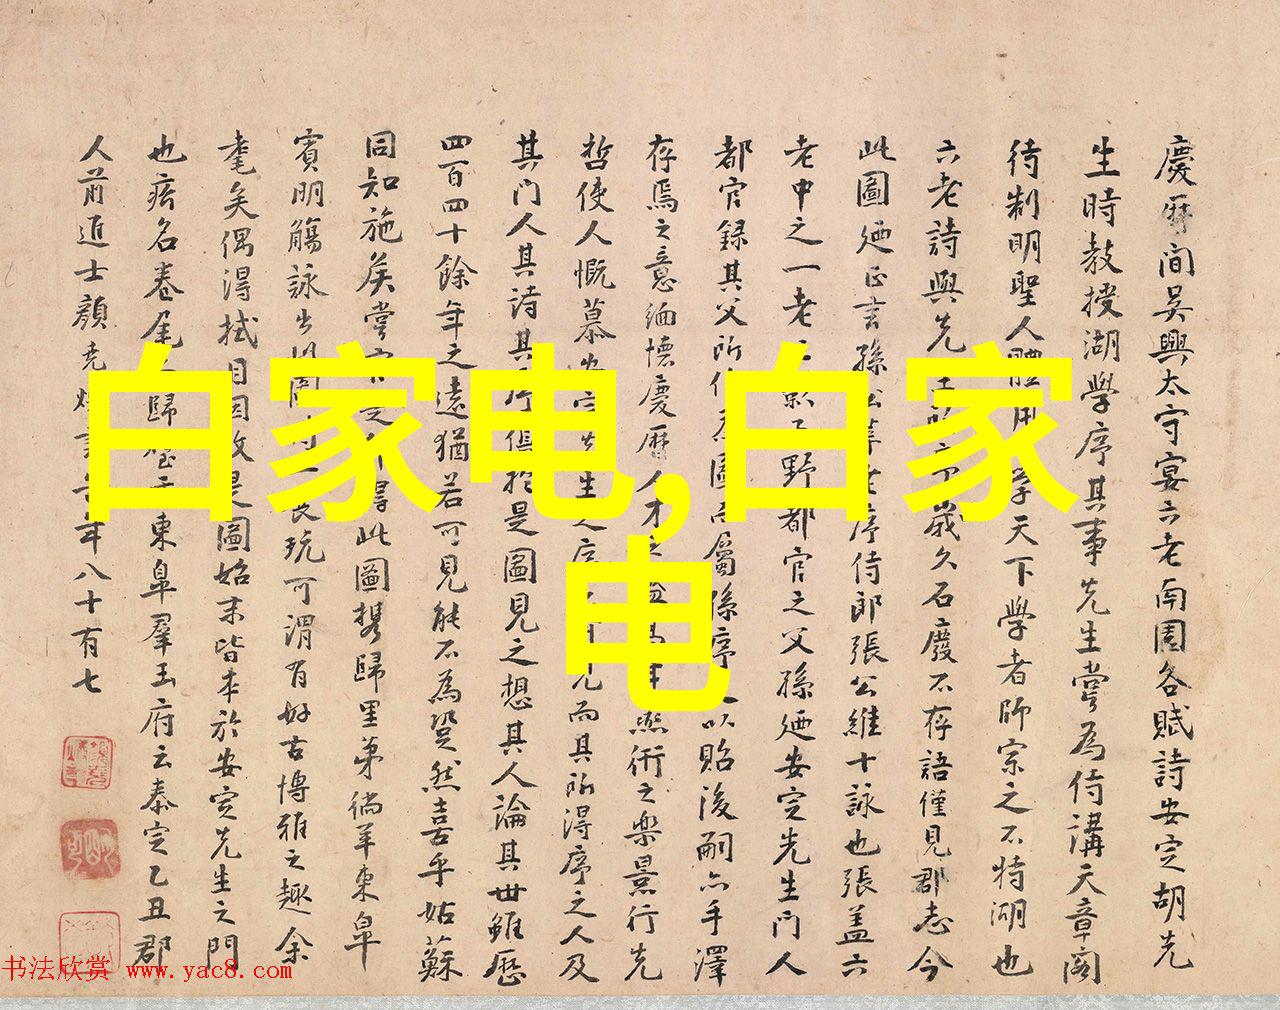 慶曆間吳興太守宴六老南園各賦詩安定胡先
生時教授湖學序其事先生嘗為侍講天章閣
待制明聖人體用學天下學者師宗之不特湖也
六老詩與先歲久石廢不存語僅見郡志今
此圖廼正言孫公序侍郎張公維十詠也張蓋六
老中之一老野都官之父孫廼安定先生門人
都官錄其父所圖而屬孫序以貽後嗣亦手澤
存焉之意緬懷慶曆人才之樂景行先
哲使人慨慕先生而其所得序之人及
其門人其詩其俱於是圖見之想其人論其世雖歷
四百四十餘年之遠猶若可見能不為然喜乎姑蘇
同知施侯嘗得此圖携歸里第徜羊東皐
賓明觴詠出玩可謂有好古博雅之趣余
耄矣偶得拭目因是圖始末皆本於安定先生之門
也疥名卷尾歸東皐羣玉府云泰定乙丑郡
人前進士顏堯煥年八十有七
白家电,白家
电
书法欣赏 www.yac8.com